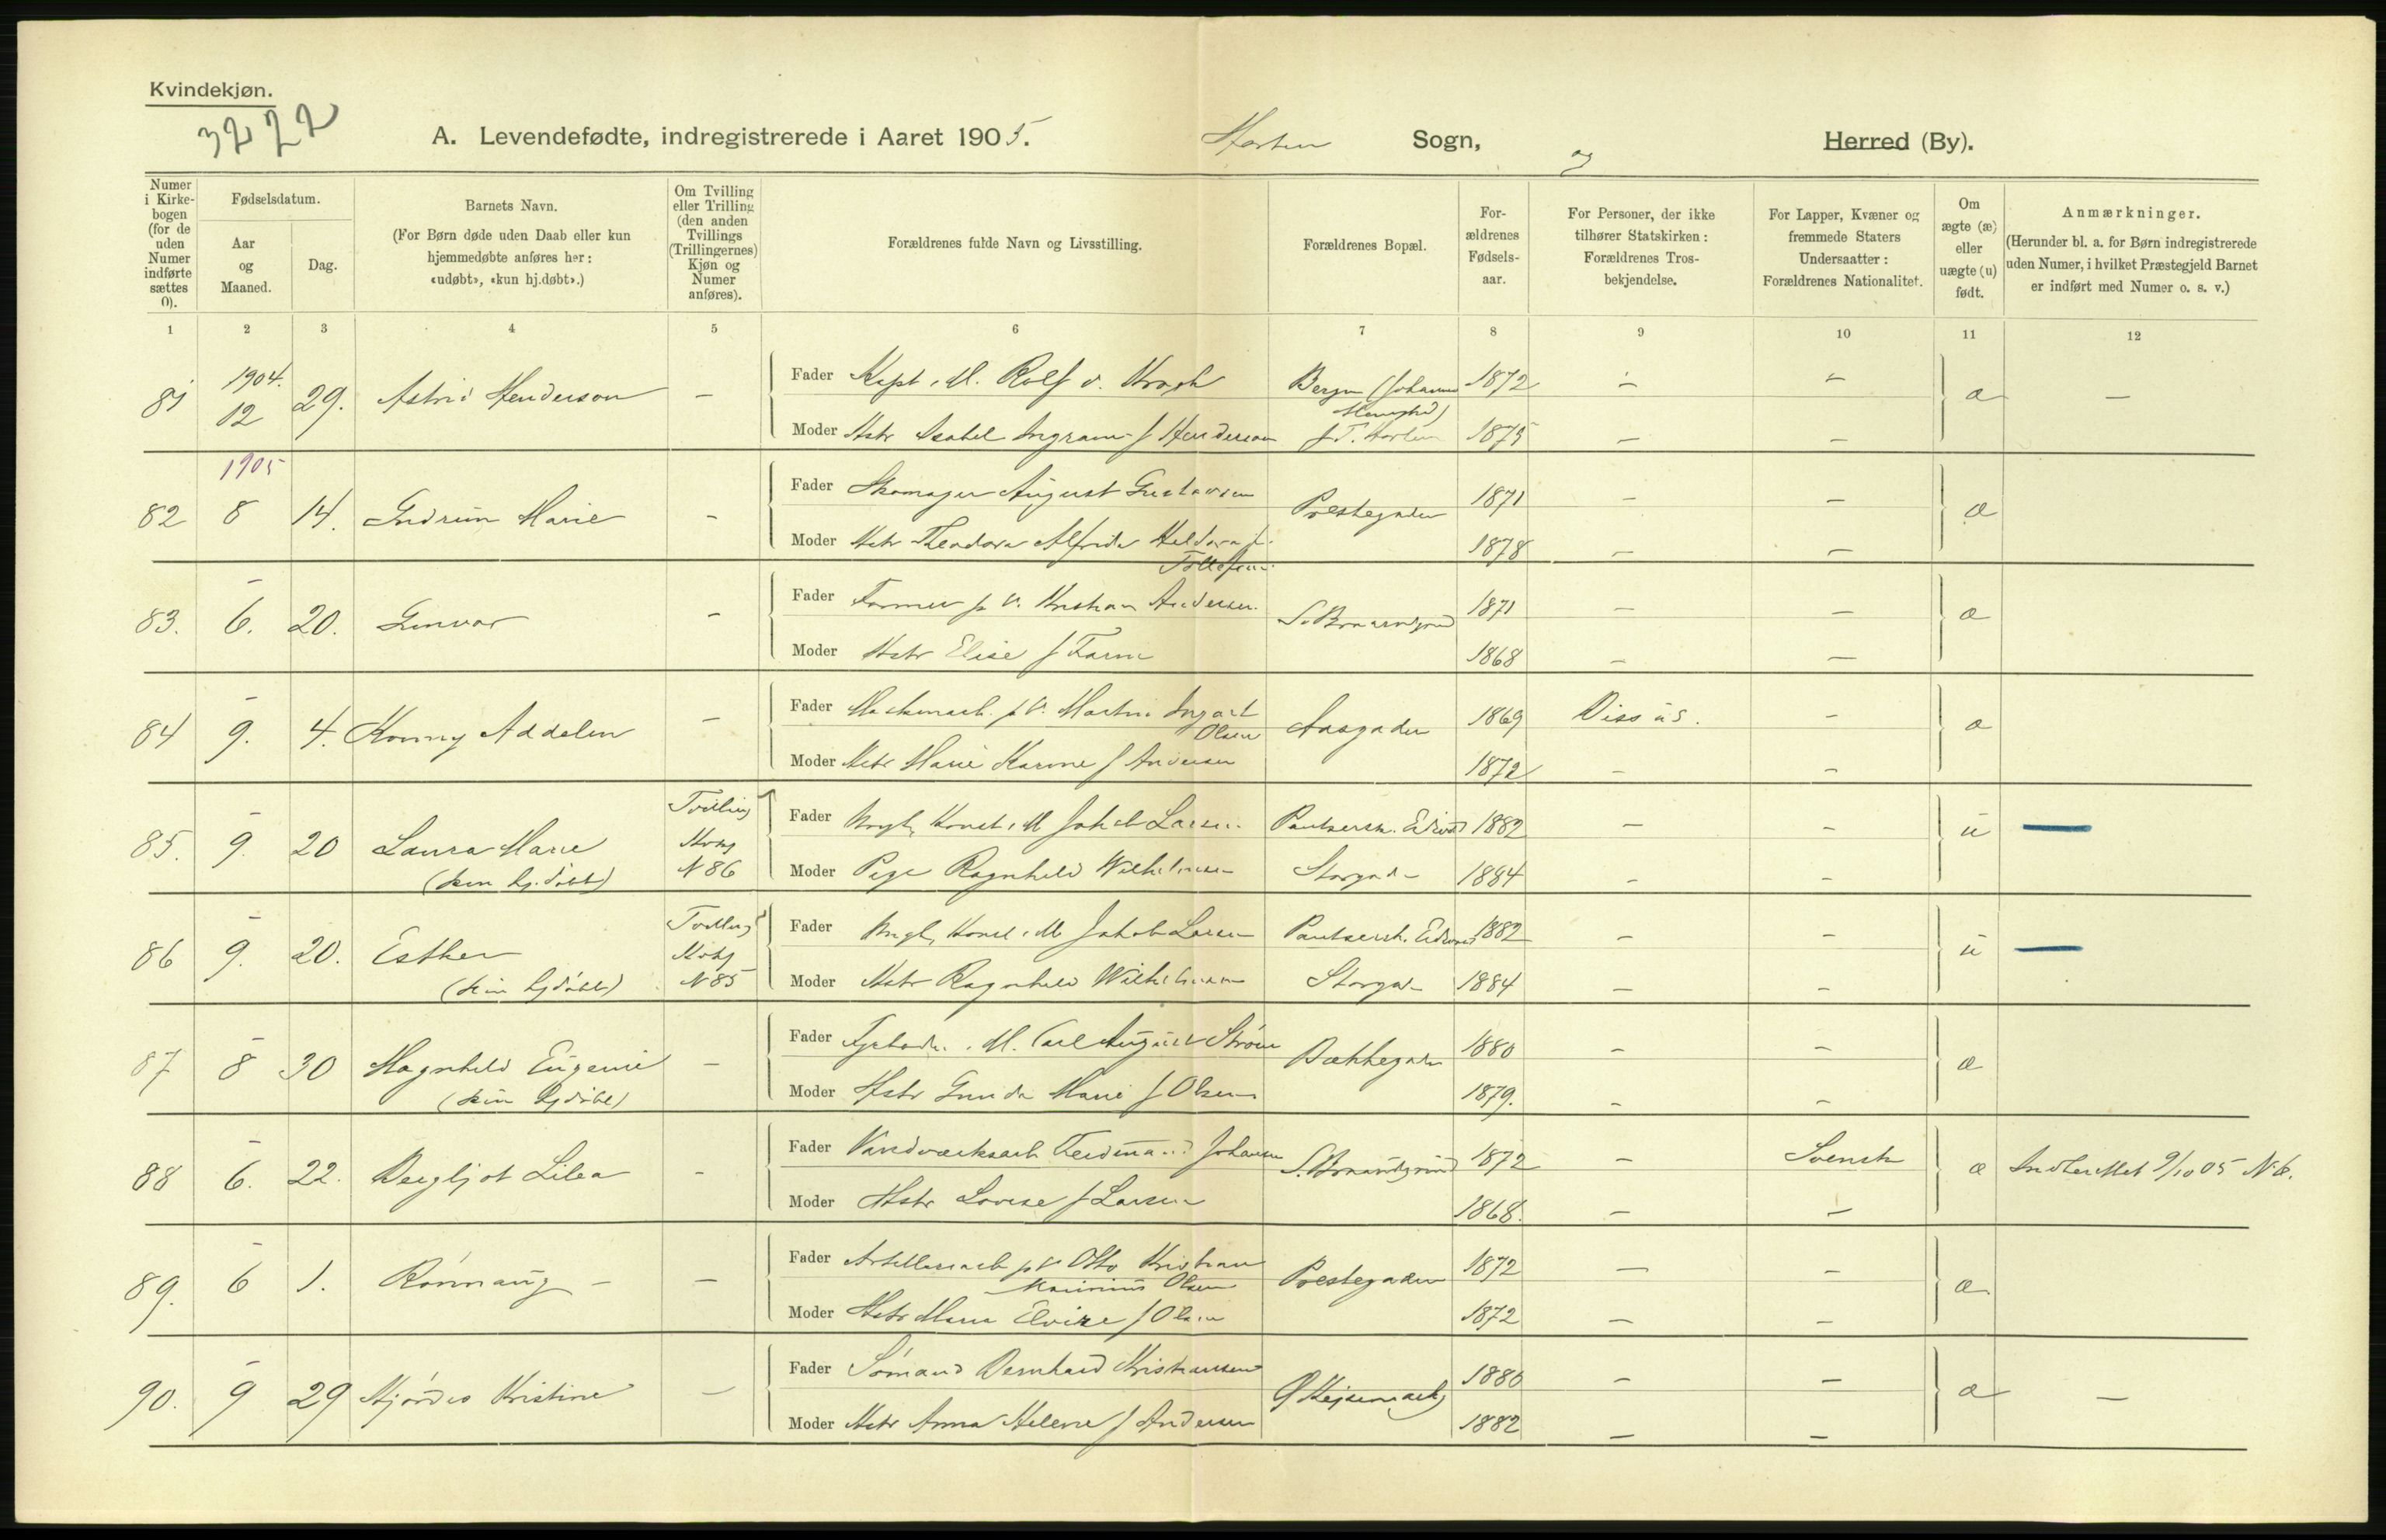 Kvindekjøn.
3222
A. Levendefødte, indregistrerede i Aaret 1905. Horten Sogn, og Herred (By).
Numer i Kirkebogen (for de uden Numer indførte sættes 0).
Fødselsdatum.
Aar og Maaned.
Dag.
Barnets Navn.
(For Børn døde uden Daab eller kun hjemmedøbte anføres her: «udøbt», «kun hj.døbt».)
Om Tvilling eller Trilling (den anden Tvillings (Trillingernes) Kjøn og Numer anføres).
Forældrenes fulde Navn og Livsstilling.
Forældrenes Bopæl.
Forældrenes Fødselsaar.
For Personer, der ikke tilhører Statskirken: Forældrenes Trosbekjendelse.
For Lapper, Kvæner og fremmede Staters Undersaatter: Forældrenes Nationalitet.
Om ægte (æ) eller uægte (u) født.
Anmærkninger.
(Herunder bl. a. for Børn indregistrerede uden Numer, i hvilket Præstegjeld Barnet er indført med Numer o. s. v.)
1 2 3 4 5 6 7 8 9 10 11 12
81 1904. 12 29. Astrid Henderson - Fader Kapt. M. Rolf v. Krogh Bergen 1872 - - æ -
Moder Hstr Isabel Ingram f Henderson f. T. Horten 1875 - -
1905
82 8 14. Gudrun Marie - Fader Skomager August Gustavsen Prestegaden 1871 - - æ
Moder Hstr Theodora Alfrida Haldora f. Tollefsen 1878 - -
83. 6. 20. Gunvor - Fader Former p. V. Kristian Andersen 1871 - - æ
Moder Hstr Elise f Farm 1868 - -
84 9. 4. Konny Addelen - Fader p. V. Martin Ingart Olsen Aasgaden 1869 Diss us. - æ
Moder Hstr Marie Karine f Andersen 1872 - -
85. 9. 20 Laura Marie (kun hj.døbt) Tvilling N 86 Fader Ungk. Konst. M Jakob Larsen Pantsersk. Eidsvold 1882 - - u -
Moder Pige Ragnhild Wilhelmsen Storgad- 1884 - -
86 9. 20. Esther (kun hj døbt) Tvilling N 85 Fader Ungk. Konst. M Jakob Larsen Pantsersk. Eidsvold 1882 - - u -
Moder Hstr Ragnhild Wilhelmsen Storgad- 1884 - -
87 8 30 Magnhild Eugenie (kun hj døbt) - Fader Fyrbøder. M. Carl August Strøm Bakkegaden 1880 - - æ
Moder Hstr Gunda Marie f Olsen 1879. - -
88 6. 22. Bergljot Lilea - Fader Vandværksarb Ferdinand Johansen 1872 - Svensk æ Indberettet 9/10 05 N 6.
Moder Hstr Lovise f Larsen 1868. - -
89. 6 1. Rønnaug - - Fader Artilleriarb p V Otto Kristian Marinius Olsen Prestegaden 1872 - - æ
Moder Hstr Maria Elvire f Olsen 1872 - -
90. 9 29 Hjørdis Kristine - Fader Sømand Bernhard Kristiansen 1880 - - æ -
Moder Hstr Anna Helene f Andersen 1882 - -